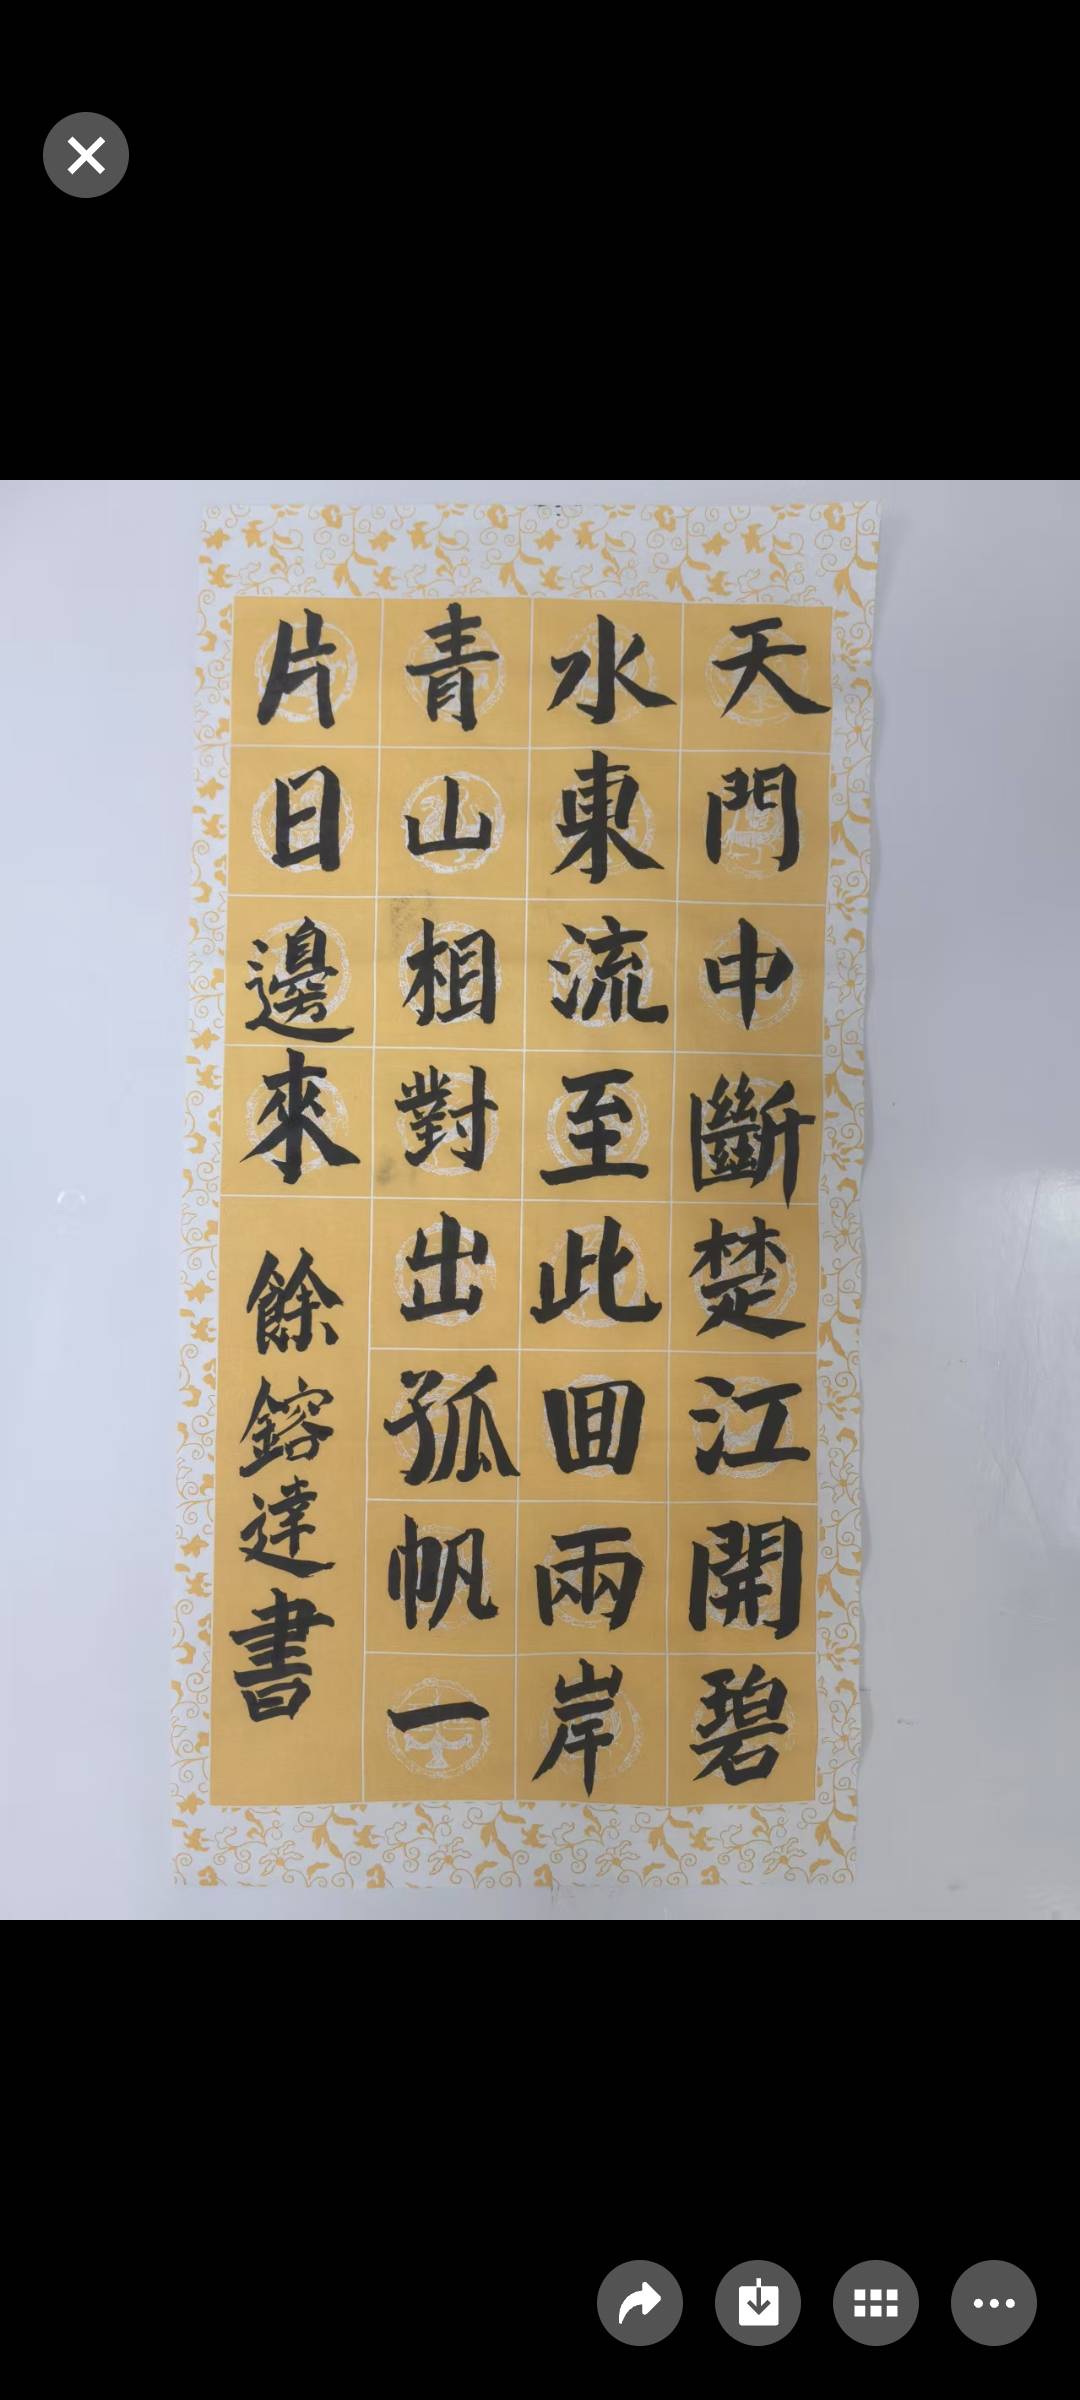 天門中斷楚江開碧
水東流至此回兩岸
青山相對出孤帆一
片日邊來
餘鎔達書